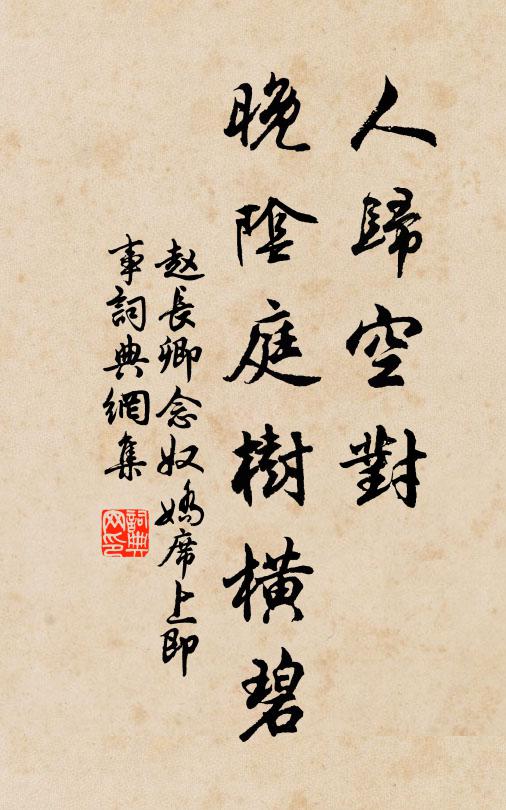 人歸空對
晚陰庭樹橫碧
赵長卿念奴嬌席上即
事詞典網集
詞典
网印